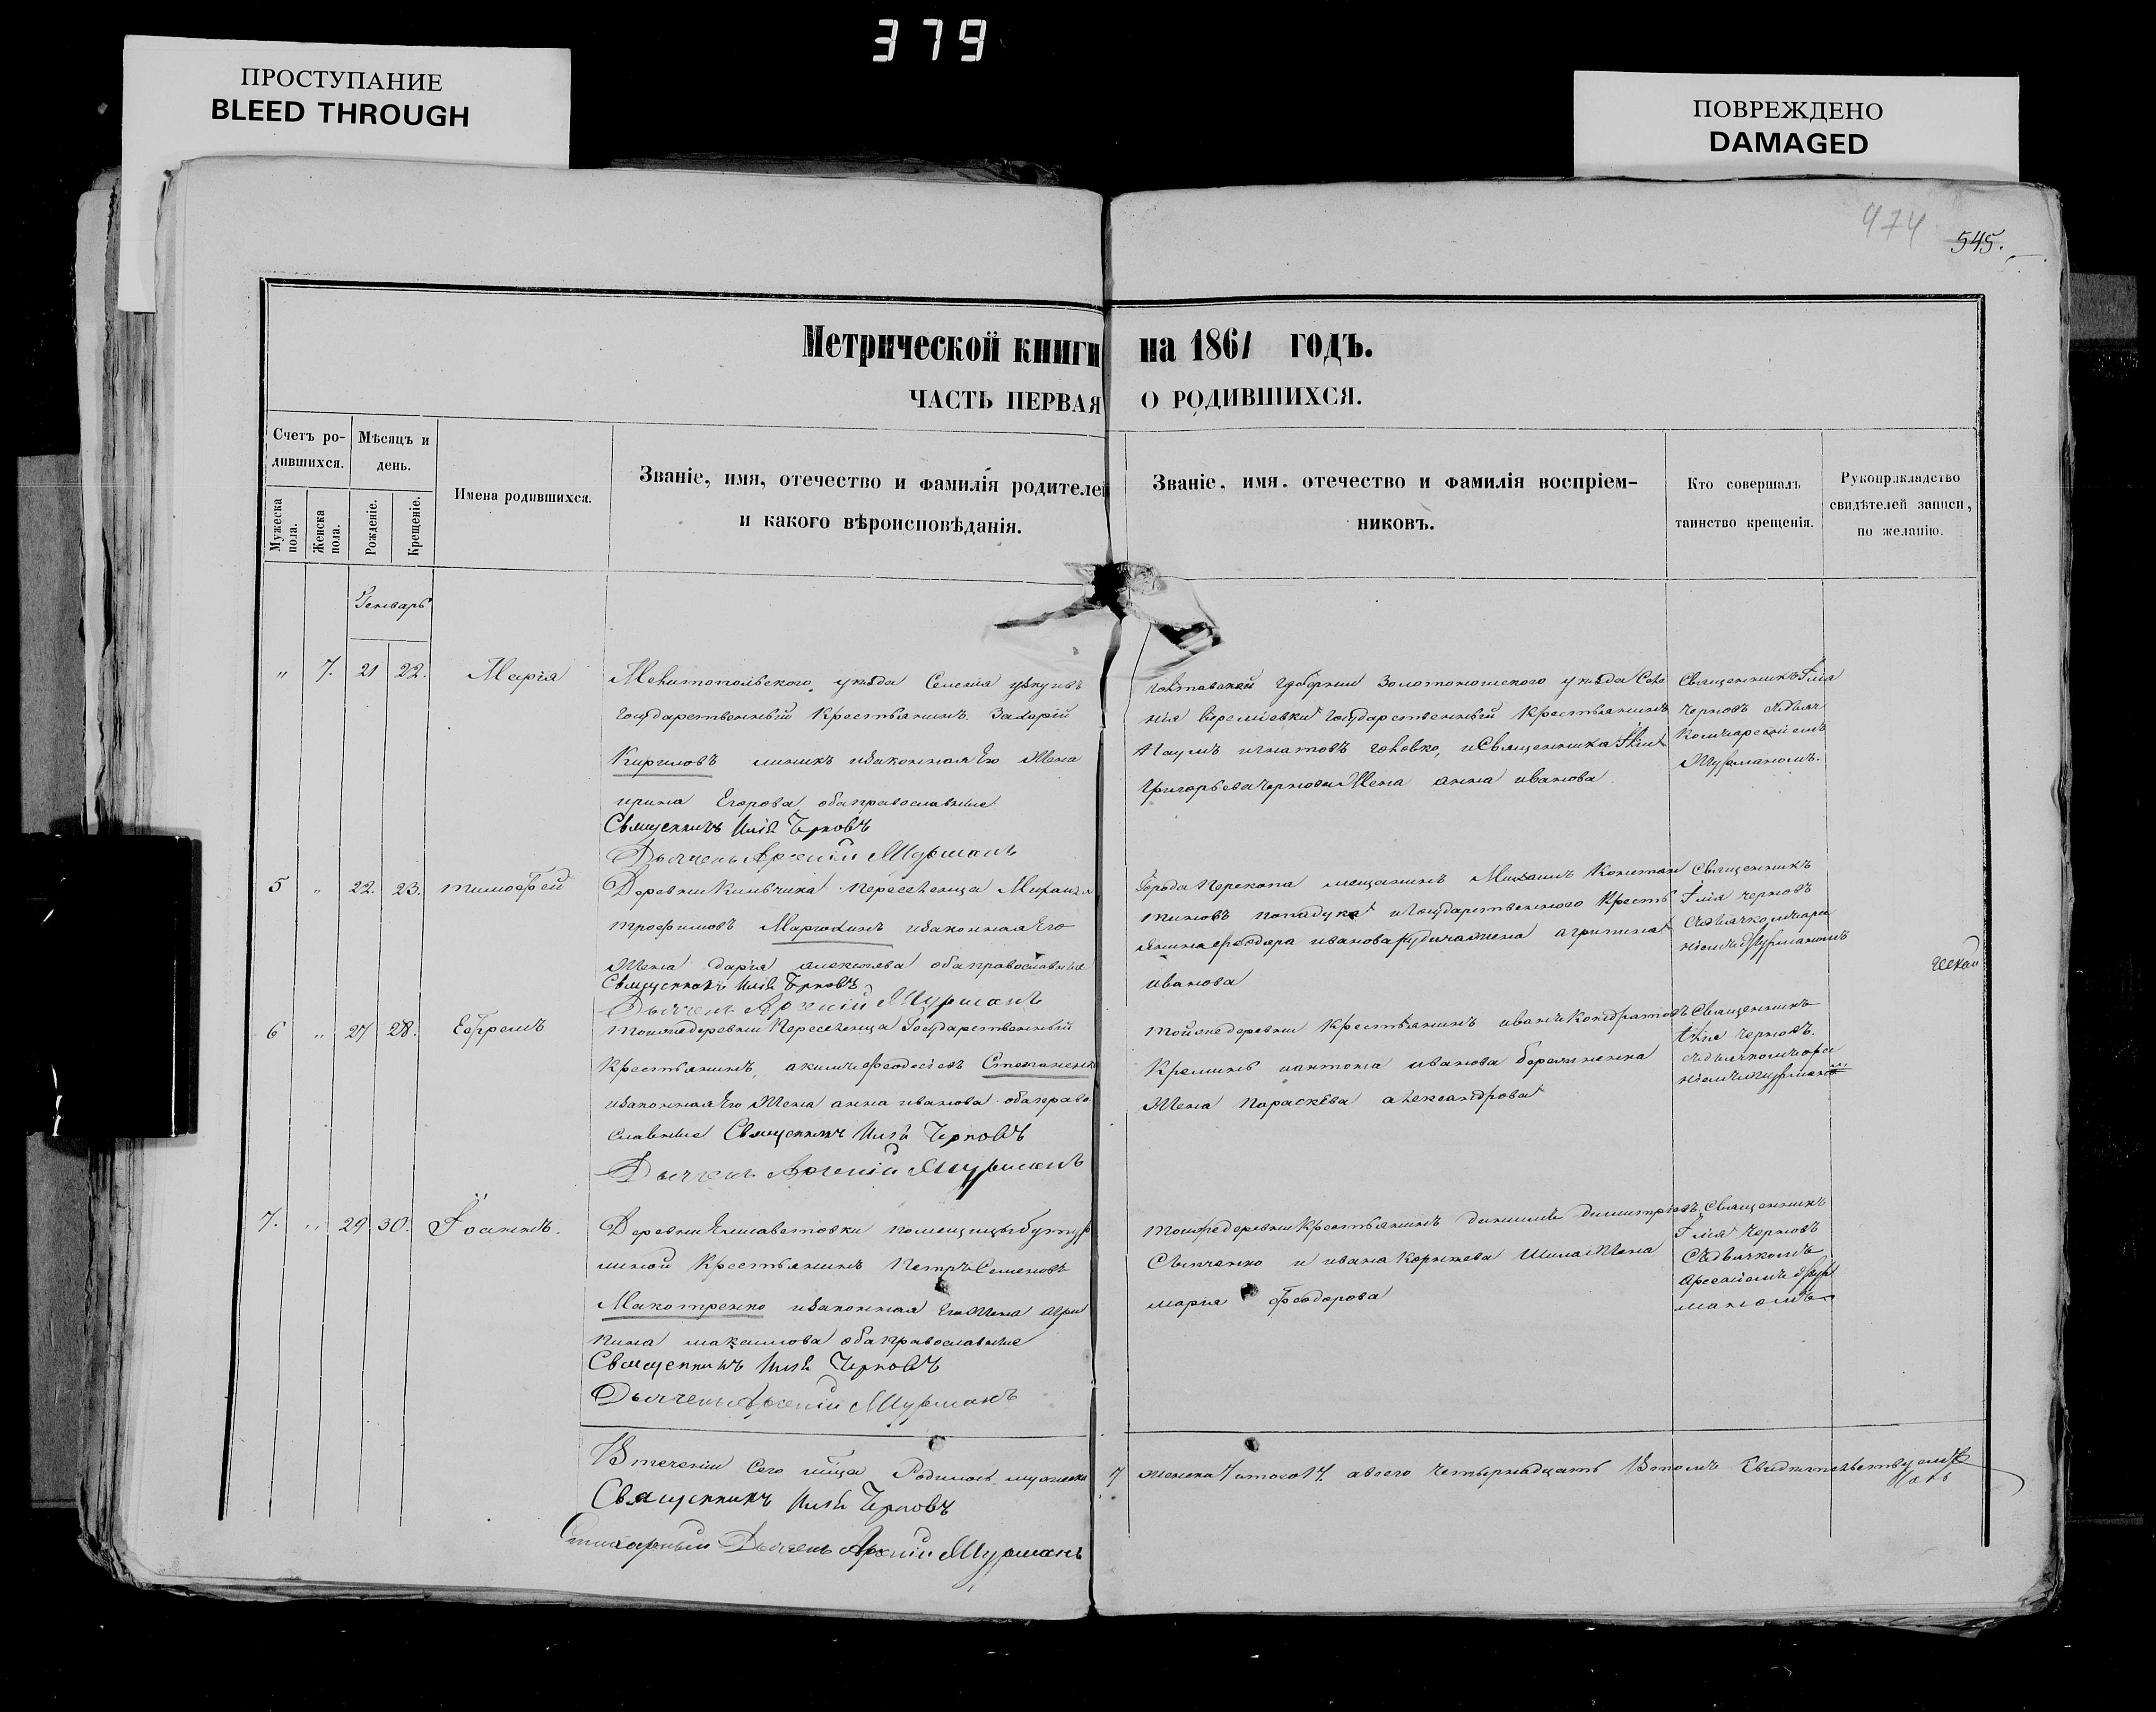 379
ПРОСТУПАНИЕ
BLEED THROUGH
ПОВРЕЖДЕНО
DAMAGED
474
545.
Метрической книги на 1861 годъ.
ЧАСТЬ ПЕРВАЯ О РОДИВШИХСЯ.
Счетъ ро-
дившихся.
Мужеска
пола.
Женска
пола.
Мѣсяцъ и
день.
Рожденіе.
Крещеніе.
Имена родившихся.
Званіе, имя, отечество и фамилія родителей
и какого вѣроисповѣданія.
Званіе, имя, отечество и фамилія воспріем-
никовъ.
Кто совершалъ
таинство крещенія.
Рукоприкладство
свидѣтелей записи,
по желанію.
Генварь
" 7. 21 22. Марія
Мелитопольскаго уѣзда Селенія
государственный крестьянинъ Захарій
Кириловъ изаконная Его Жена
ирина Егорова оба православные
Священникъ Илія Черновъ
Дьяченъ Арсеній Мурманъ
Полтавской губерніи Золотоношскаго уѣзда Селе
нія Веремiевки государственный крестьянинъ
Наумъ игнатовъ головко, иСвященника Іліи
григорьева чернова Жена анна иванова
Священникъ Ілія
Черновъ сДьяч
комъ арсеніемъ
Мурманомъ.
5 " 22. 23. тимофей
Деревни переселенца Михаилъ
трофимовъ Марюхинъ изаконная Его
Жена дарія алексѣева оба православные
Священникъ Илія Черновъ
Дьяченъ Арсеній Мурманъ
Города Перекопа мещанинъ Михаилъ Констан
тиновъ попадука игосударственнаго кресть
янина феодора иванова жена агрипина
иванова
Священникъ
Ілія Черновъ
съдьячкомъ арсе
ніемъ Мурманомъ
6 " 27 28. Ефремъ
тойжедеревни Переселенца Государственный
крестьянинъ, акимъ феодосіевъ Степаненко
изаконная Его Жена анна иванова оба право
славные Священникъ Илія Черновъ
Дьяченъ Арсеній Мурманъ
тойжедеревни крестьянинъ иванъ Кондратовъ
Креминь иантона иванова
Жена параскева александрова
Священникъ
Ілія Черновъ.
съдьячкомъ арсе
ніемъ мурманомъ
7. " 29 30. Іоаннъ.
Деревни Елисаветовки помещицы бутур
линой Крестьянинъ Петръ Семеновъ
Макотренко изаконная Его Жена агри
пина максимова оба православные
Священникъ Илія Черновъ
Дьяченъ Арсеній Мурманъ
тойжедеревни крестьянинъ даниилъ димитріевъ
и ивана Корнѣева Шила Жена
марія феодорова
Священникъ
Ілія Черновъ
Съдьячкомъ
Арсеніемъ Мур
маномъ
Втеченіи Сего мѣсяца Родилось мужеска 7 женска 7 итого 14. авсего четырнадцать Втомъ Свидѣтельствуемъ
Священникъ Илія Черновъ
Стихарный Дьяченъ Арсеній Мурманъ